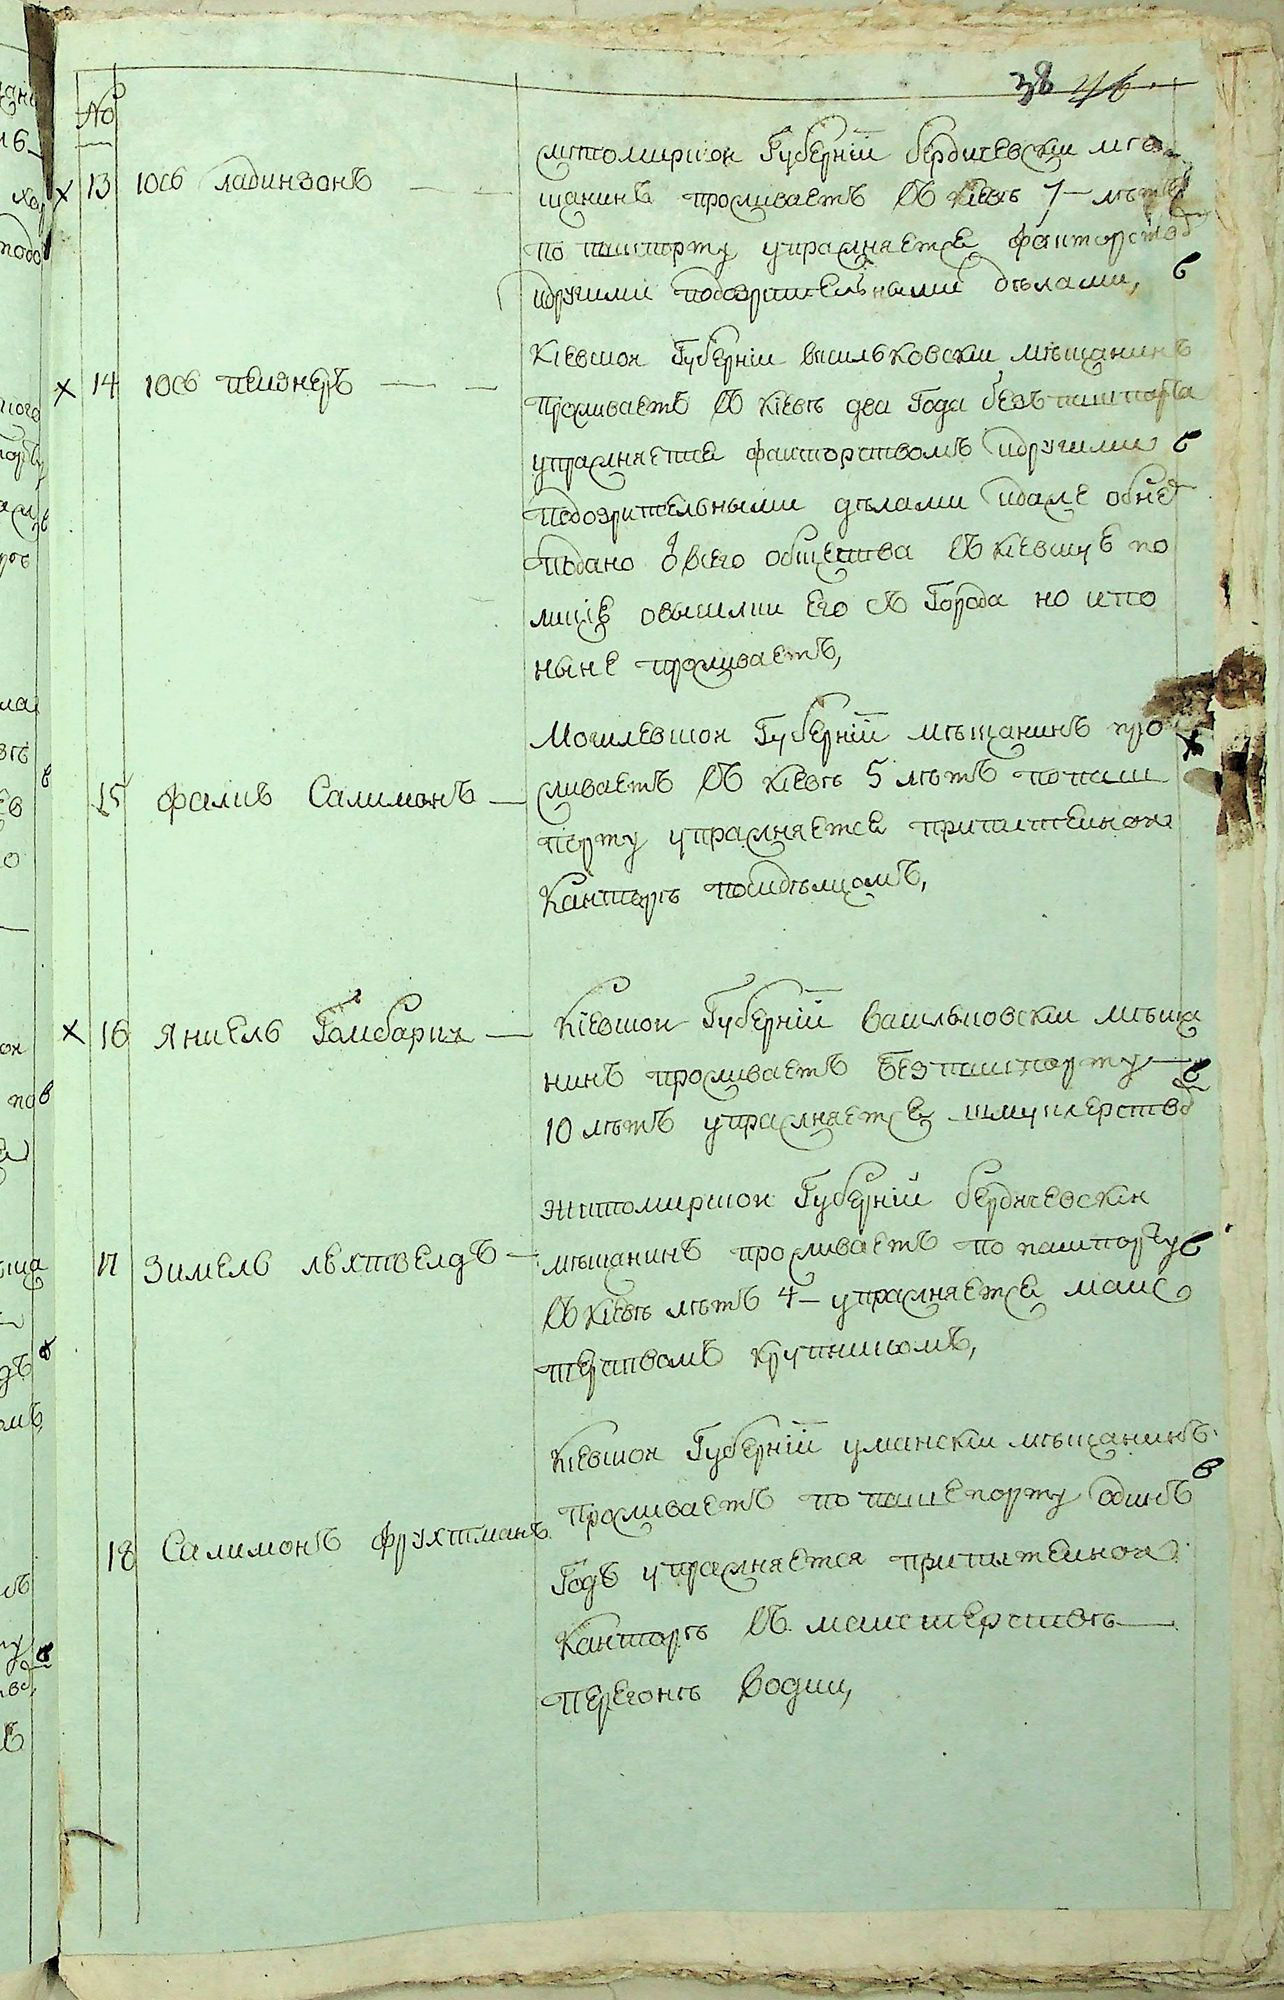 38
№
13 Юсь ладинзонъ
житомирской Губерніи бердичевски мѣ
щанинъ проживаетъ въ Кіевѣ 7 лѣтъ
по пашпорту упражняется факторство
идругими подозрительными дѣлами,
14 Юсь
Кіевской Губерніи васильковски мѣщанинъ
проживаетъ въ Кіевѣ два Года безъ пашпорта
упражняется факторствомъ идругими
подозрительными дѣлами
подано о всего общества въ кіевску по
лицію овысилки его съ Города но и по
ныне проживаетъ,
15 фалиь Салимонъ
Могилевской Губерніи мѣщанинъ про
живаетъ въ Кіевѣ 5 лѣтъ попаш
порту упражняется припитейной
Канторѣ
16 Яниель Гомбарих
Кіевской Губерніи васильковскіи мѣща
нинъ проживаетъ безпашпорту
10 лѣтъ упражняется
17 Зимель лехтвелдъ
житомирской Губерніи бердичевскіи
мѣщанинъ проживаетъ по пашпорту
въ Кіевѣ лѣтъ 4 упражняется маис
терствомъ
18 Салимонъ фрухтманъ
Кіевской Губерніи уманскіи мѣщанинъ
проживаетъ по пашепорту одинъ
Годъ упражняется припитейной
Канторѣ въ маистерствѣ
перегонѣ водки,